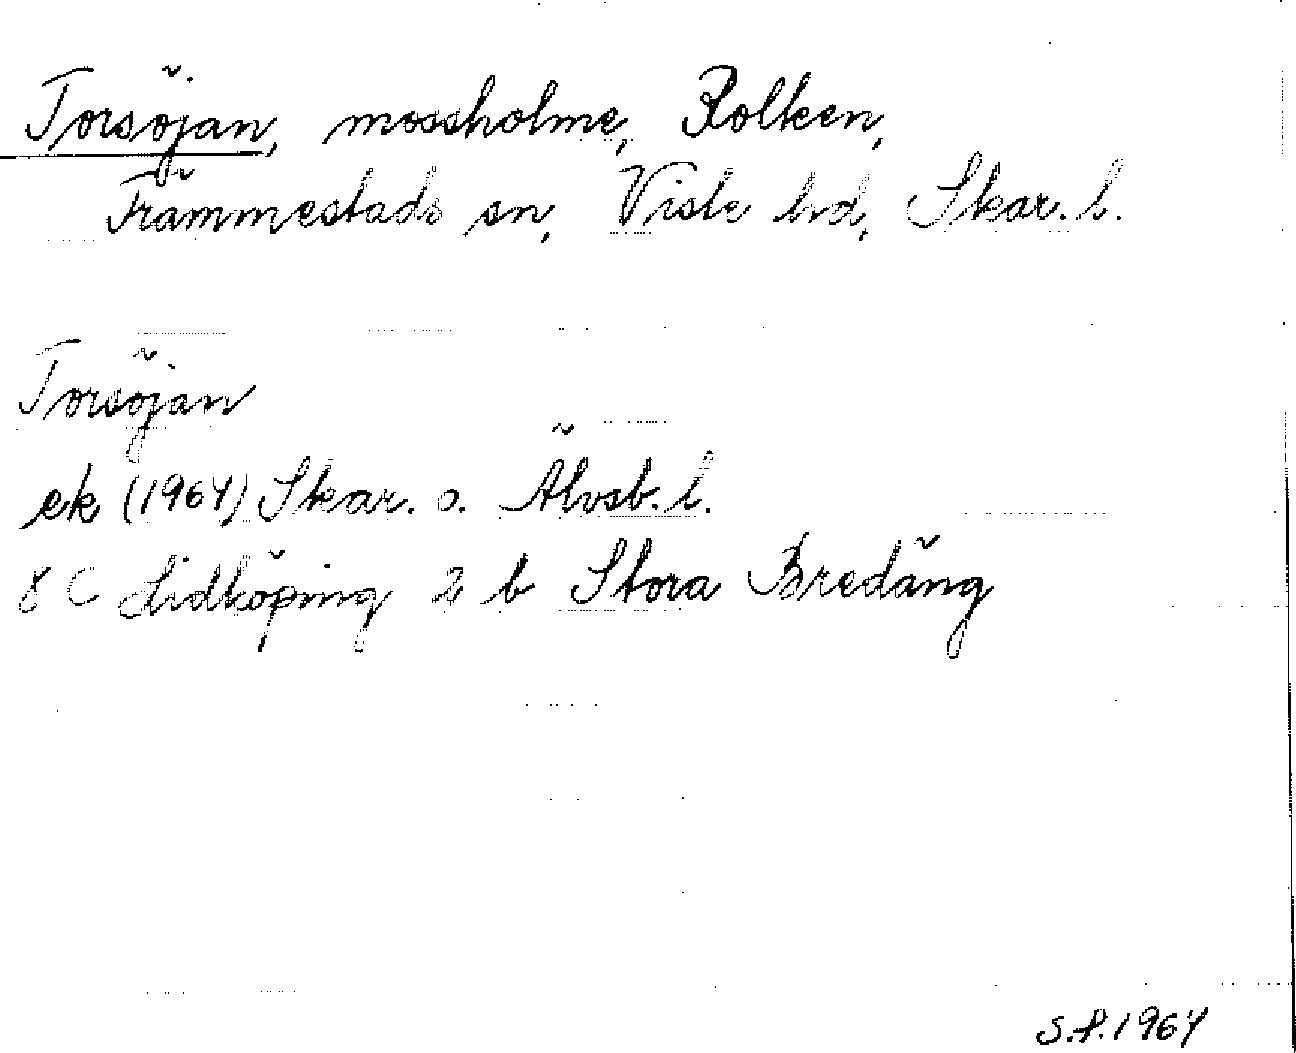 Torsöjan, mossholme, Rolken,
Främmestads sn, Viste hd, Skar. l.
Torsöjan
ek (1964) Skar. o. Älvsb. l.
8 C Lidköping 2 b Stora Bredäng
S.P. 1964